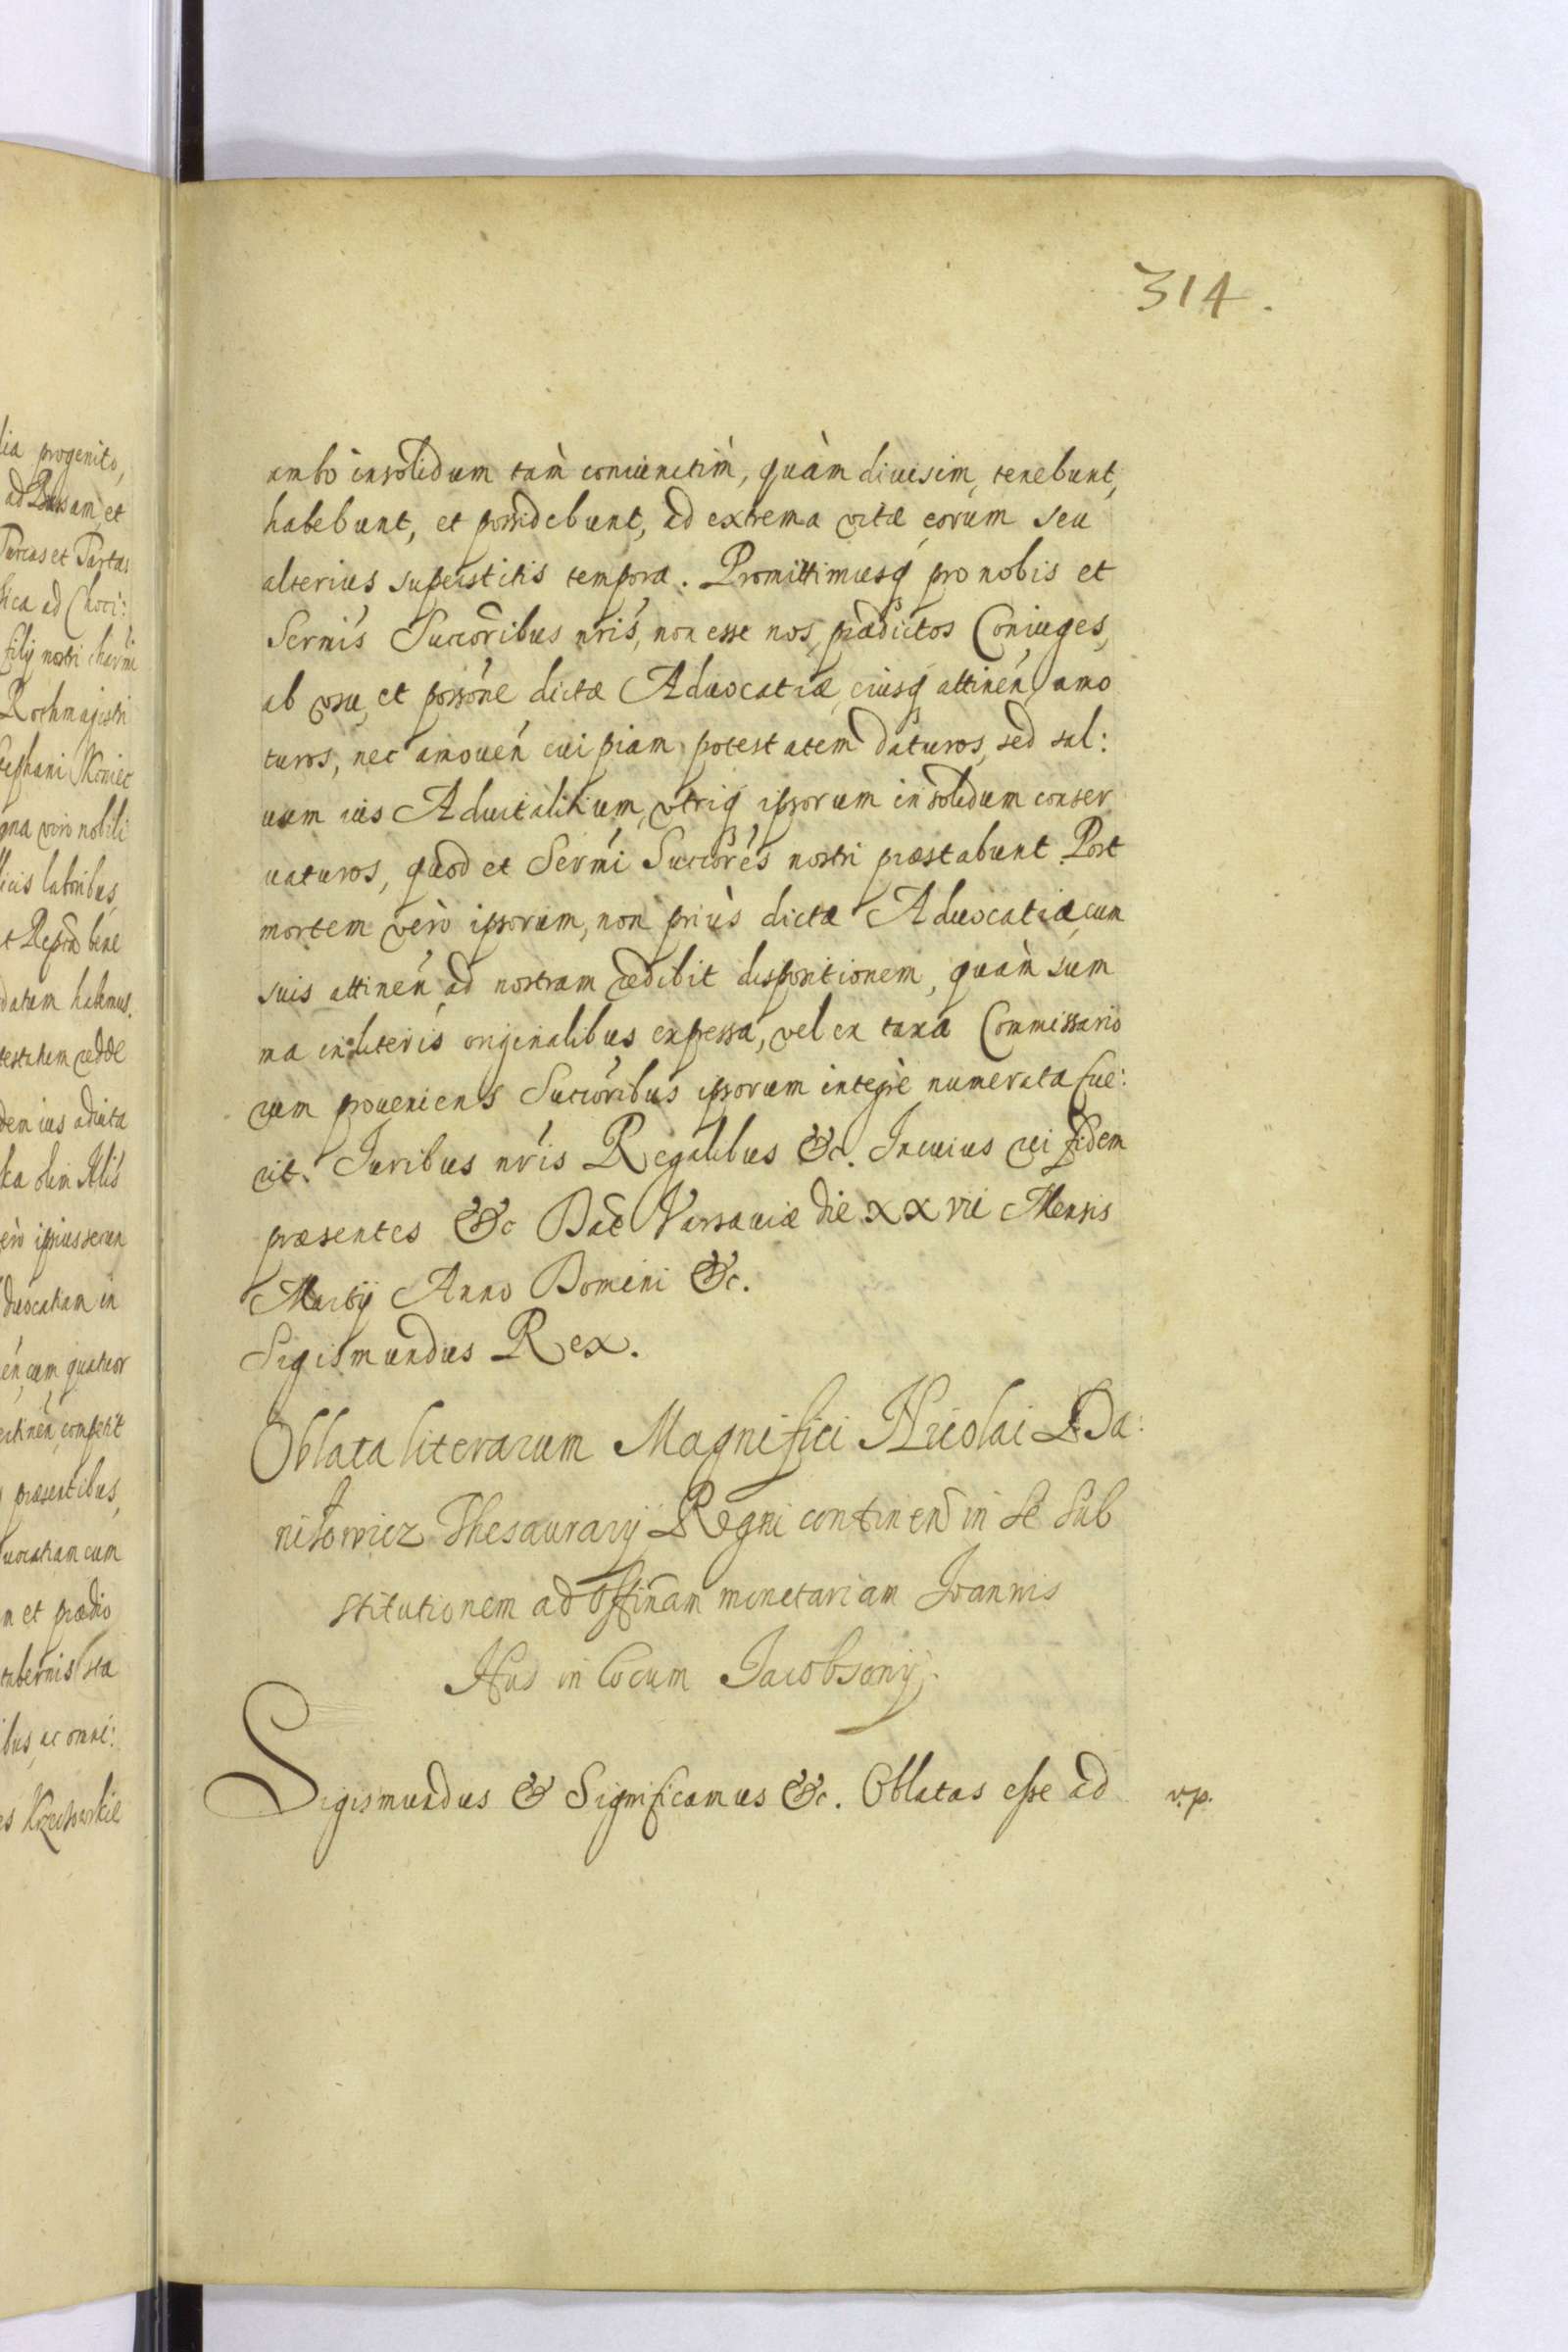 314.
ambo insolidum tam̀ coniunctim̀, quàm diuisim, tenebunt,
habebunt, et possidebunt, ad extrema vitæ eorum seu
alterius superstitis tempora. Promittimusq́ pro nobis et
Sermis Succoribus nris, non esse nos, prædictos Coniuges,
ab vsu, et possone dictæ Aduocatiæ, eiusq́ attinen, amo
turos, nec amouen cuipiam potestatem daturos, sed sal:
uum ius Aduitalitium, vtriq́ ipsorum insolidum conser
uaturos, quod et Sermi Succores nostri præstabunt. Post
mortem verò ipsorum, non priùs dictæ Aduocatiæ, cum
suis attinen ad nostram redibit dispositionem, quàm sum
ma in literis originalibus expressa, vel ex taxa Commissario
rum proueniens Succoribus ipsorum integrè numerata fue:
rit. Iuribus nris Regalibus &c. In cuius rei fidem
præsentes &c Dat Varsauiæ die XXVII Mensis
Martij Anno Domini &c.
Sigismundus Rex.
Oblata literarum Magnifici Nicolai Da:
niłowicz Thesaurarij Regni continen in se sub
stitutionem ad Offinam monetariam Ioannis
Hus in locum Jacobsonij.
Sigismundus & Significamus &c. Oblatas esse ad v.p.
lia progenito,
ad Russam, et
Turcas et Tartar
sica ad Choci:
filij nostri charmi
Rothmagistri
Stephani Koniec
viro nobili
laboribus,
bene
datam habemus.
ius aduita
olim
ipsius
Aduocatiam in
cum quatuor
competit
præsentibus,
Aduocatiam cum
et prædio
tabernis
ac omni: